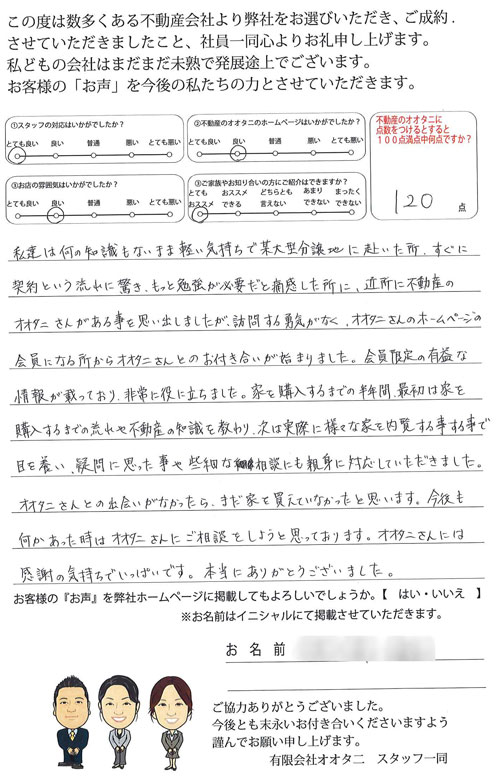 この度は数多くある不動産会社より弊社をお選びいただき、ご成約.
させていただきましたこと、社員一同心よりお礼申し上げます。
私どもの会社はまだまだ未熟で発展途上でございます。
お客様の「お声」を今後の私たちの力とさせていただきます。
①スタッフの対応はいかがでしたか?
とても良い 良い 普通 悪い とても悪い
②不動産のオオタニのホームページはいかがでしたか?
とても良い 良い 普通 悪い とても悪い
不動産のオオタニに
点数をつけるとすると
100点満点中何点ですか?
120 点
③お店の雰囲気はいかがでしたか?
とても良い 良い 普通 悪い とても悪い
③ご家族やお知り合いの方にご紹介はできますか?
とても オススメ どちらとも あまり まったく
おススメ できる 言えない できない できない
私達は何の知識もないまま軽い気持ちで某大型分譲地に赴いた所、すぐに
契約という流れに驚き、もっと勉強が必要だと痛感した所に、近所に不動産の
オオタニさんがある事を思い出しましたが、訪問する勇気がなく、オオタニさんのホームページの
会員になる所からオオタニさんとのお付き合いが始まりました。会員限定の有益な
情報が載っており、非常に役に立ちました。家を購入するまでの半年間、最初は家を
購入するまでの流れや不動産の知識を教わり、次は実際に様々な家を内覧する事する事で
目を養い、疑問に思った事や些細な相談にも親身に対応していただきました。
オオタニさんとの出会いがなかったら、まだ家を買えていなかったと思います。今後も
何かあった時はオオタニさんにご相談をしようと思っております。オオタニさんには
感謝の気持ちでいっぱいです。本当にありがとうございました。
お客様の『お声』を弊社ホームページに掲載してもよろしいでしょうか。【 はい・いいえ 】
※お名前はイニシャルにて掲載させていただきます。
お 名 前
ご協力ありがとうございました。
今後とも末永いお付き合いくださいますよう
謹んでお願い申し上げます。
有限会社オオタニ スタッフ一同